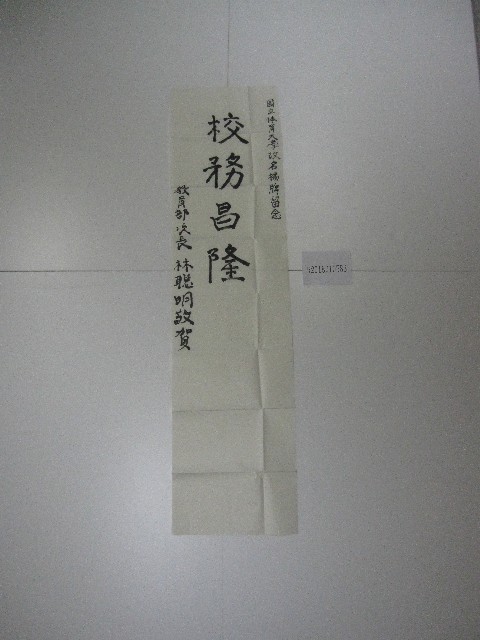 國立体育大學改名揭牌留念
校務昌隆
教育部次長 林聰明敬賀